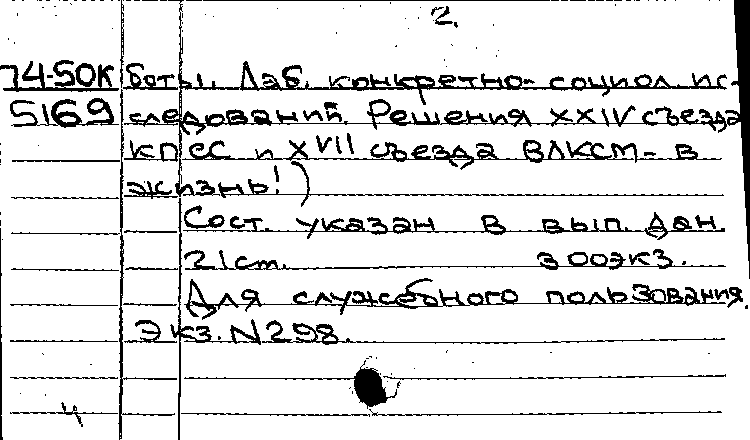 2.
74-50К боты. Лаб. конкретно-социол. ис-
5169 следований. Решения XXIV съезда
КПСС и XVII съезда ВЛКСМ - в
жизнь!)
Сост. указан в вып. дан.
21 cm. 300экз.
Для служебного пользования.
Экз. N298.
4